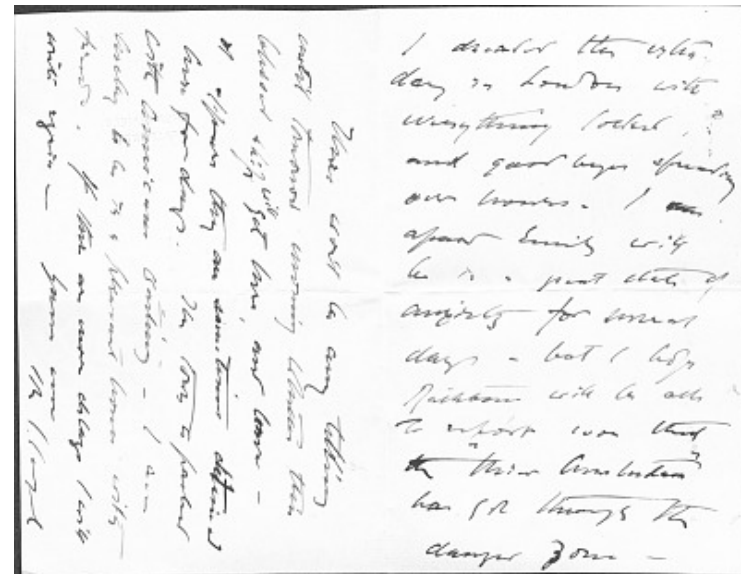 I dreaded the extra
day in London with
everything locked,
and good byes spreading
over hours. I am
afraid Emily will
be in a great state of
anxiety for several
days - but I hope
will be able
to report soon that
the "Nieuw Amsterdam"
has got through the
danger zone -
There won't be any telling
until tomorrow morning whether this
blessed ship will get here, and leave -
it appears they are sometimes detained
here for days. The town is packed
with Americans waiting - I am
lucky to be in a pleasant house with
friends. If there are more delays I will
write again - Yours ever